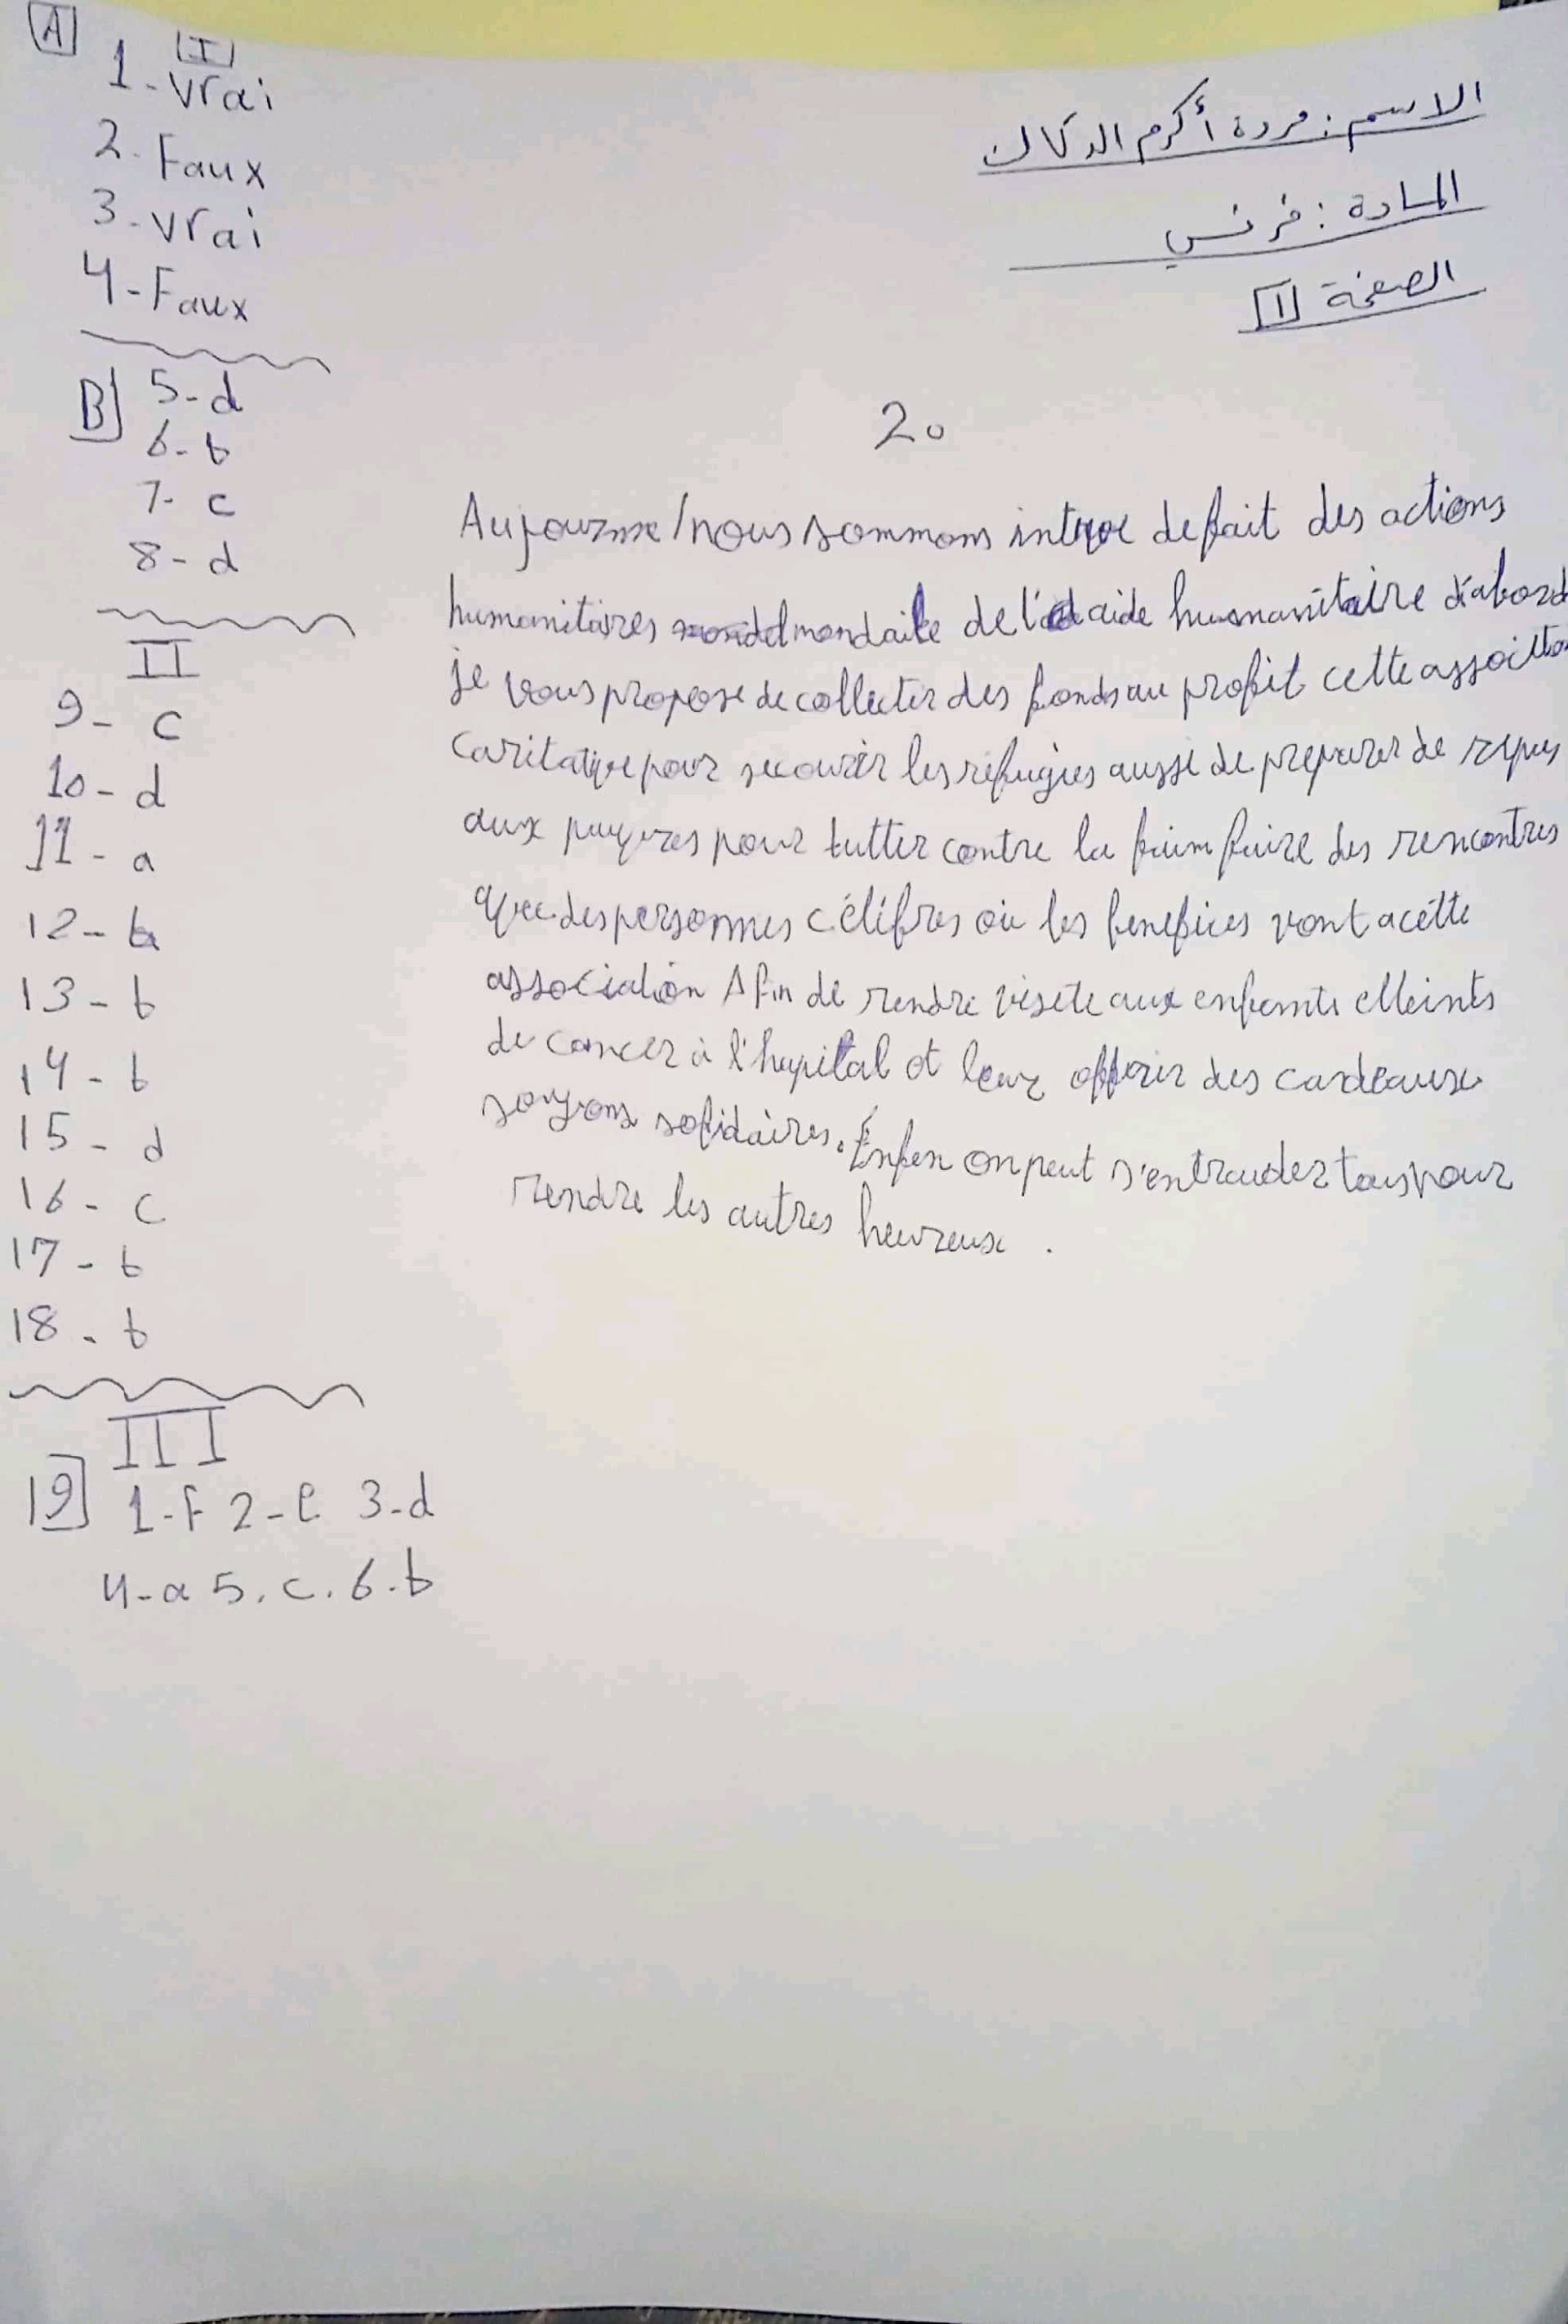 الاسم: مروة أكرم الدكاك
المادة: فرنسي
الصفحة [1]
[A]
[I]
1-Vrai
2. Faux
3-vrai
4-Faux
B] 5-d
6-b
7- c
8-d
II
9- c
10-d
11-a
12-b
13-b
14-b
15-d
16-c
17-b
18-b
III
19] 1-F 2-e 3-d
4-a 5.c.6.b
20
/nous sommons de fait des actions
humanitaires mondaile de l'aide humanitaire d'abord
je vous propose de collecter des fonds au profit cette
caritative pour secourir les réfugies aussi de preparer de repas
aux pauvres pour lutter contre la faim faire des rencontres
avec des personnes célèbres où les benefices vont a cette
association Afin de rendre visete aux enfants etteints
de cancer à l'hopital et leur offerir des cardeaux
soyons solidaires. Enfen on peut s'entraider tous pour
rendre les autres heureux.